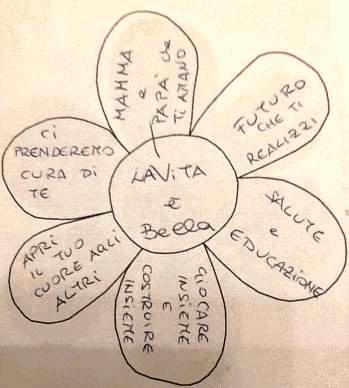 LA VITA
è
BELLA
MAMMA
e
PAPÀ che
TI AMANO
FUTURO
CHE TI
REALIZZI
SALUTE
e
EDUCAZIONE
GIOCARE
INSIEME
E
COSTRUIRE
INSIEME
APRI
IL TUO
CUORE AGLI
ALTRI
CI
PRENDEREMO
CURA DI
TE